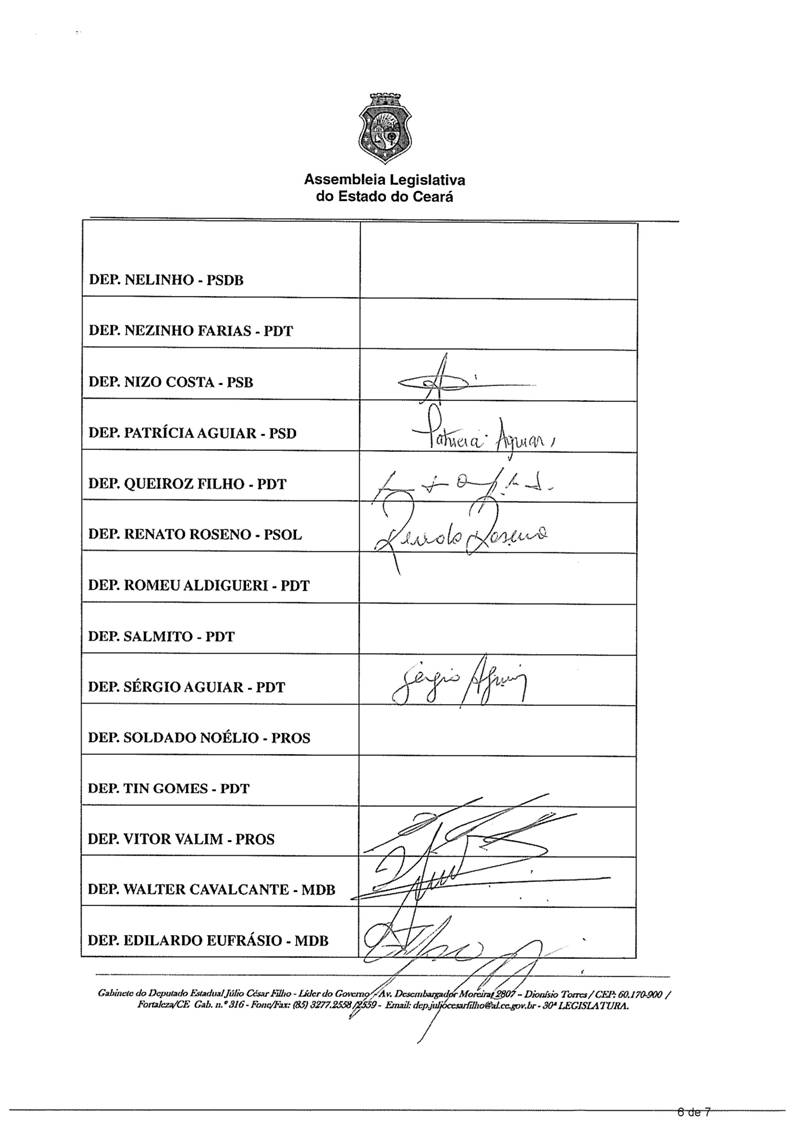 Assembleia Legislativa
do Estado do Ceará
DEP. NELINHO - PSDB
DEP. NEZINHO FARIAS - PDT
DEP. NIZO COSTA - PSB
DEP. PATRÍCIA AGUIAR - PSD
Patricia Aguiar
DEP. QUEIROZ FILHO - PDT
DEP. RENATO ROSENO - PSOL
Renato Roseno
DEP. ROMEU ALDIGUERI - PDT
DEP. SALMITO - PDT
DEP. SÉRGIO AGUIAR - PDT
Sérgio Aguiar
DEP. SOLDADO NOÉLIO - PROS
DEP. TIN GOMES - PDT
DEP. VITOR VALIM - PROS
DEP. WALTER CAVALCANTE - MDB
DEP. EDILARDO EUFRÁSIO - MDB
Gabinete do Deputado Estadual Júlio César Filho - Líder do Governo - Av. Desembargador Moreira, 2807 – Dionísio Torres / CEP: 60.170-900 /
Fortaleza/CE Gab. n.º 316 - Fone/Fax: (85) 3277.2558 /2559 - Email: dep.juliocesarfilho@al.ce.gov.br - 30ª LEGISLATURA.
6 de 7